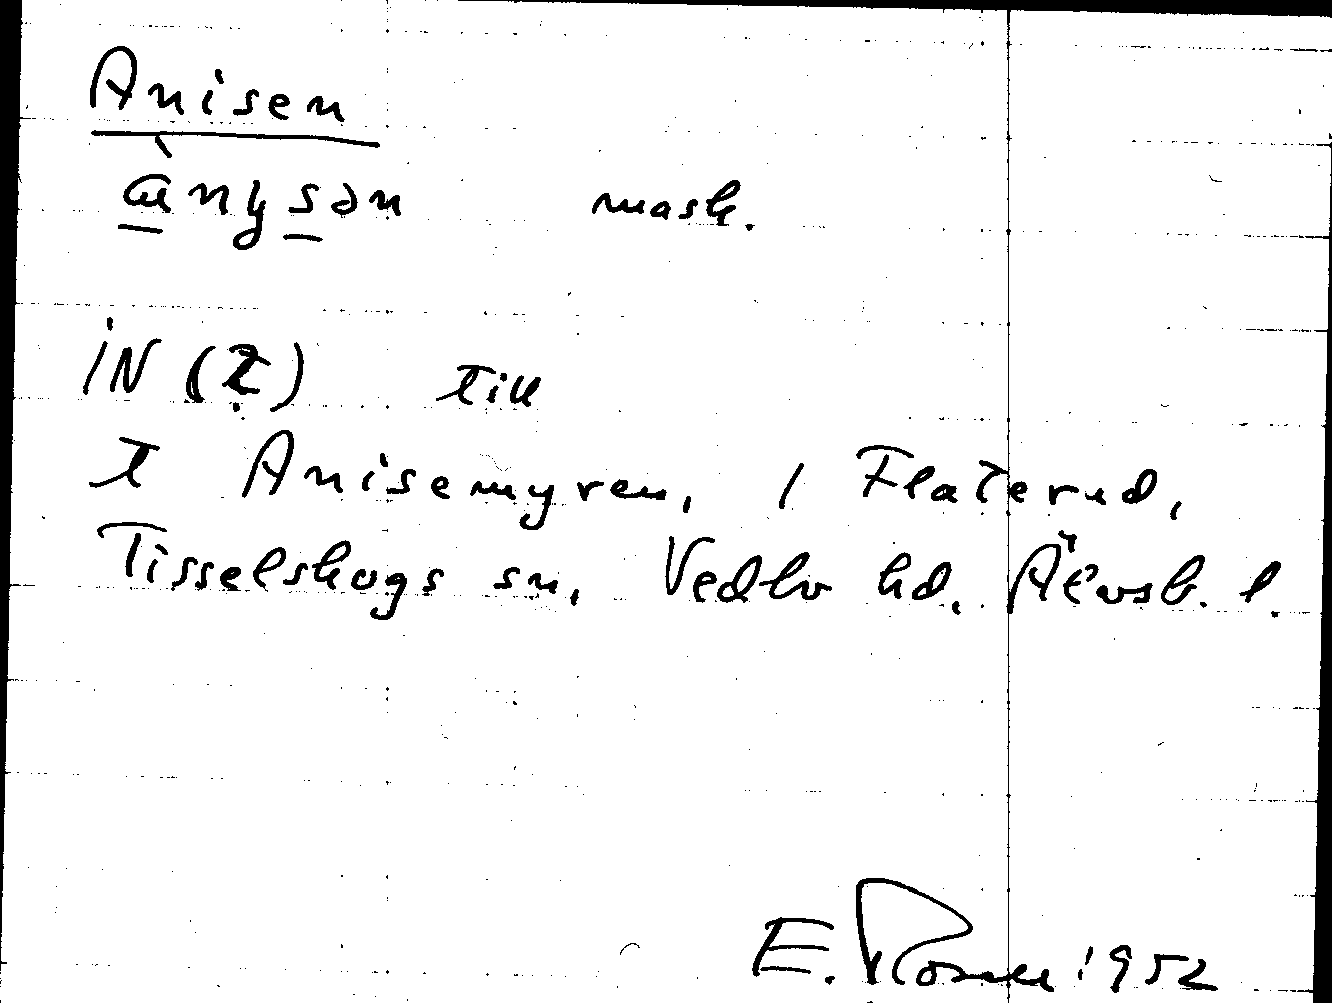 Anisen
ànysən mask.
iN (t) till
t Anisemyren, 1 Flaterud,
Tisselskogs sn, Vedbo hd. Älvsb. l.
E. 1952